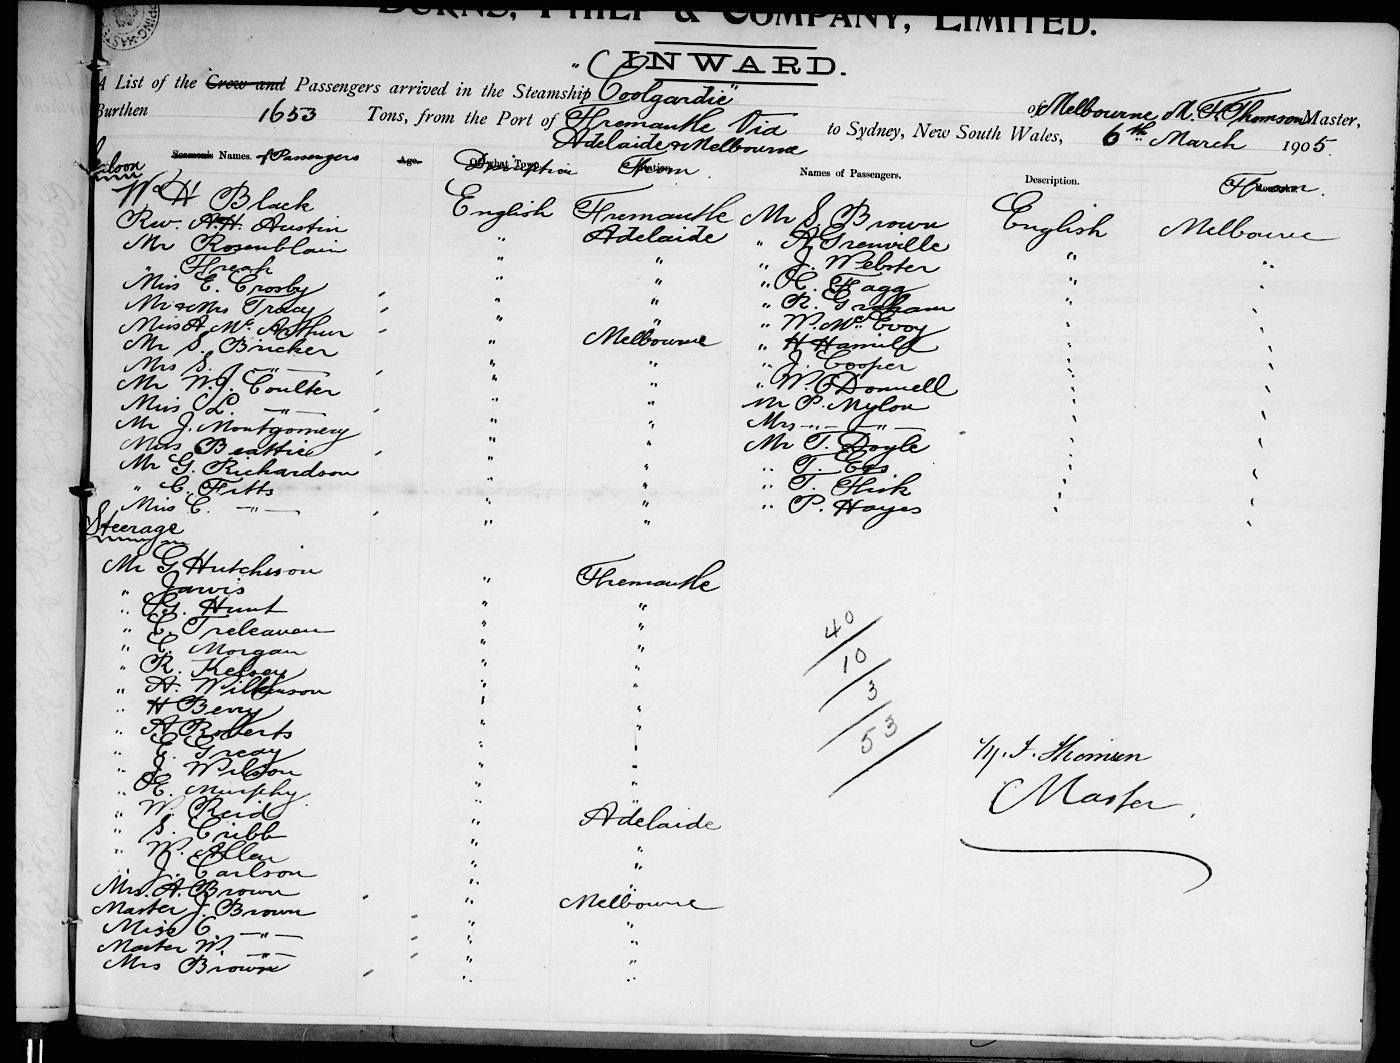 BURNS, PHILP & COMPANY, LIMITED.
INWARD.
A List of the Crew and Passengers arrived in the Steamship "Coolgardie" of Melbourne, M. T. Thomson Master,
Burthen 1653 Tons, from the Port of Fremantle Via Adelaide & Melbourne to Sydney, New South Wales, 6th March 1905.
Saloon
Seamen's Names. of Passengers Age. Of what Town. Description Station. From Names of Passengers. Description. From
Wd H Black English Fremantle
Rev. A.H. Austin " Adelaide
Mr Rosenblain " "
" Threak " "
Miss E. Crosby " "
Mr & Mrs Tracy " "
Miss A. Mc Arthur " Melbourne
Mr S. Bricker " "
Mrs S. " " "
Mr W. J. Coulter " "
Miss L. " " "
Mr J. Montgomery " "
Miss Beattie " "
Mr G. Richardson " "
" C. Fitts " "
Miss C. " " "
Steerage
Mr G Hutchison " Fremantle
" Jarvis " "
" G. Hunt " "
" E. Treleaven " "
" C. Morgan " "
" R. Kelsey " "
" A. Wilkinson " "
" H Berry " "
" A Roberts " "
" E. Greay " "
" J. Wilson " "
" E. Murphy " "
" W. Reid " Adelaide
" S. Cribb " "
" W. Allen " "
" J. Carlson " "
Mrs. A. Brown " Melbourne
Master J. Brown " "
Miss C " " "
Master W. " " "
Mrs Brown " "
Mr S. Brown English Melbourne
" A Grenville " "
" J. Webster " "
" C. Fagg " "
" R. Graham " "
" W. Mc Evoy " "
" H Hamill " "
" J. Cooper " "
" W. O'Donnell " "
Mr P. Mylon " "
Mrs " " " "
Mr T. Doyle " "
" T. " "
" T. Flisk " "
" P. Hayes " "
40
10
3
53
M. T. Thomson
Master